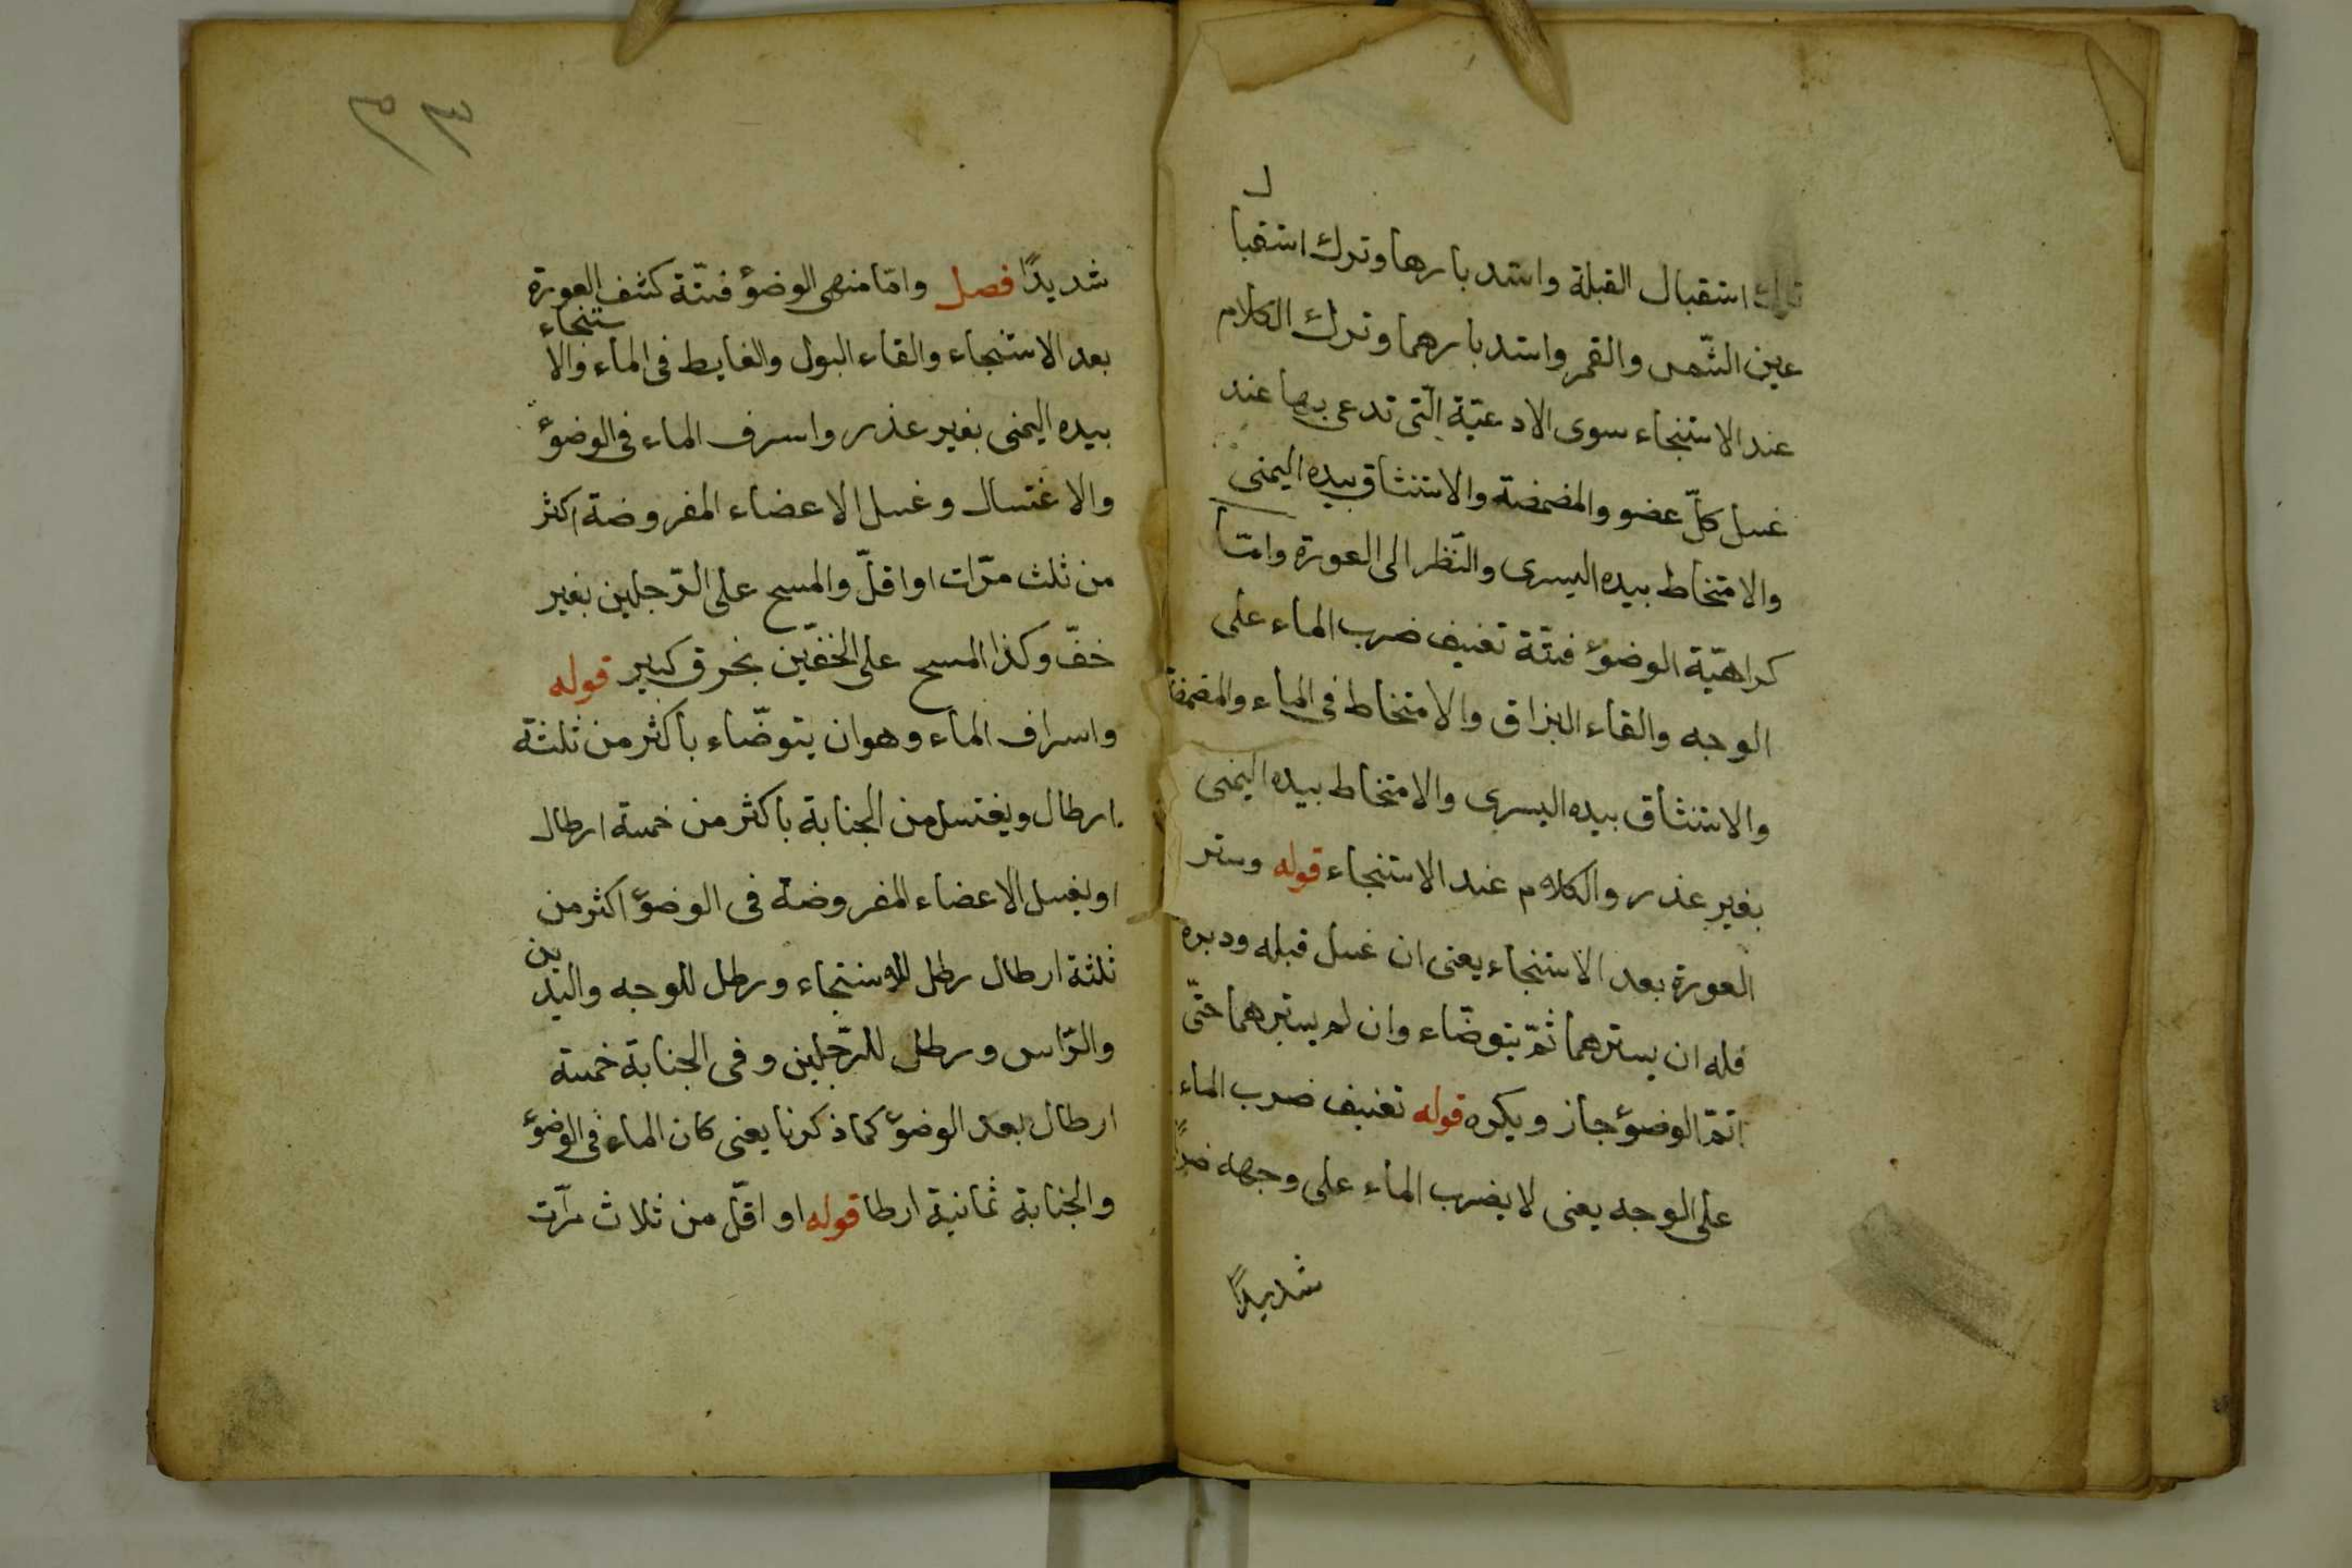 ترك استقبال القبلة واستدبارها وترك استقبال
عين الشّمس والقمر واستدبارهما وترك الكلام
عند الاستنجاء سوى الادعيّة الّتى تدعى بها عند
غسل كلّ عضو والمضمضة والاستنشاق بيده اليمنى
والامتخاط بيده اليسرى والنّظر الى العورة وامّا
كراهيّة الوضوء فستّة تعنيف ضرب الماء على
الوجه والقاء البزاق والامتخاط فى الماء والمضمضة
والاستنشاق بيده اليسرى والامتخاط بيده اليمنى
بغير عذر والكلام عند الاستنجاء قوله وستر
العورة بعد الاستنجاء يعنى ان غسل قبله ودبره
فله ان يسترهما ثمّ يتوضّاء وان لم يسترهما حتّى
اتمّ الوضوء جاز ويكره قوله تعنيف ضرب الماء
على الوجه يعنى لا يضرب الماء على وجهه ضربًا
شديدًا
شديدًا فصل وامّا منهى الوضوء فستّة كشف العورة
بعد الاستنجاء والقاء البول والغايط فى الماء والاستنجاء
بيده اليمنى بغير عذر واسرف الماء فى الوضوء
والاغتسال وغسل الاعضاء المفروضة اكثر
من ثلث مرّات او اقلّ والمسح على الرّجلين بغير
خفّ وكذا المسح على الخفّين بخرق كبير قوله
واسراف الماء وهو ان يتوضّاء باكثر من ثلثة
ارطال ويغتسل من الجنابة باكثر من خمسة ارطال
او يغسل الاعضاء المفروضة فى الوضوء اكثر من
ثلثة ارطال رطل للاستنجاء ورطل للوجه واليدين
والرّاس ورطل للرّجلين وفى الجنابة خمسة
ارطال بعد الوضوء كما ذكرنا يعنى كان الماء فى الوضوء
والجنابة ثمانية ارطا قوله او اقلّ من ثلاث مرّات